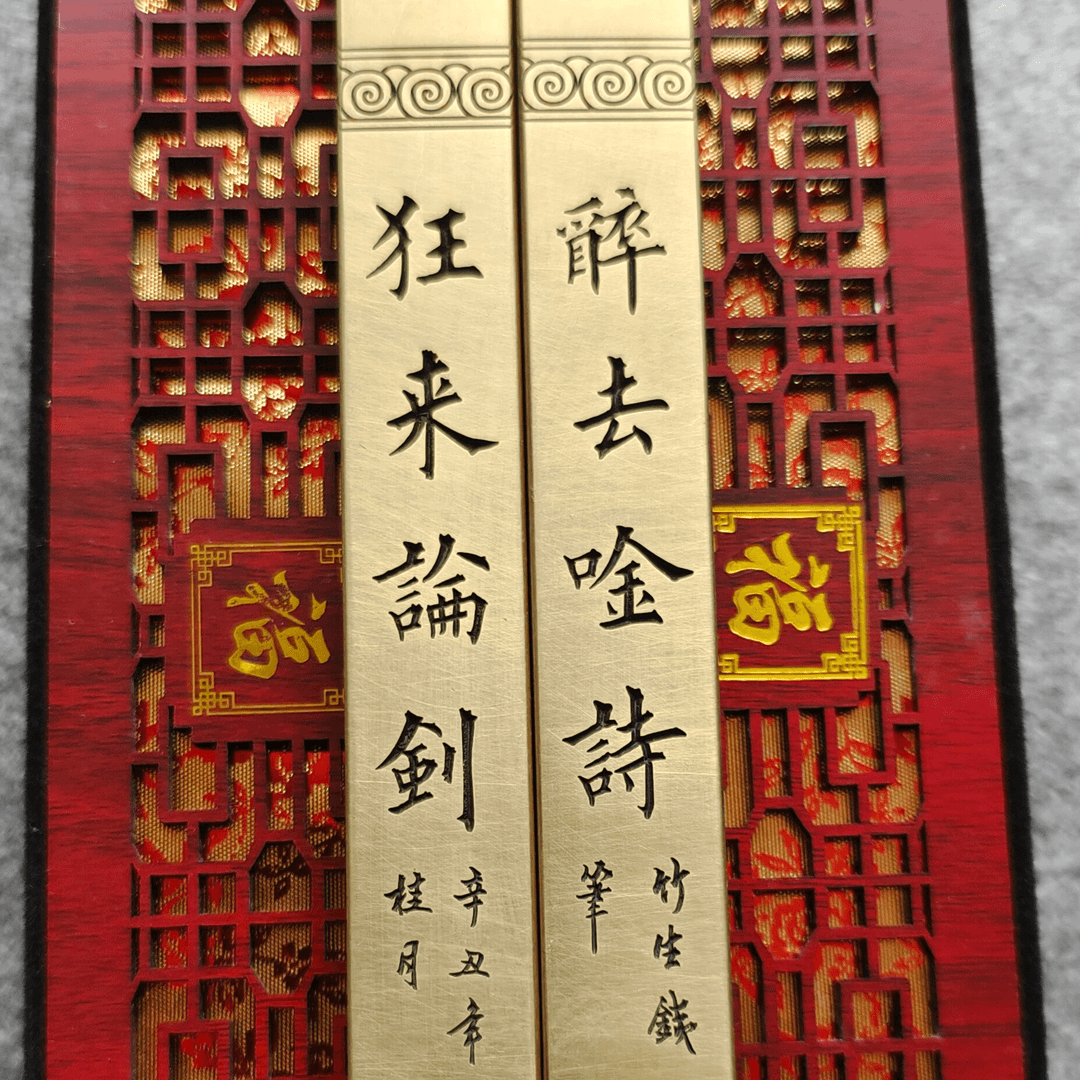 醉去唫詩
竹生錢
筆
狂来論劍
辛丑年
桂月
福
福